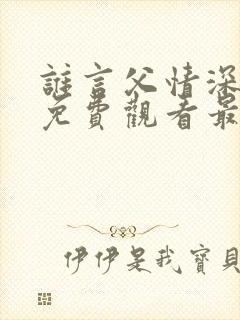 誰言父情深
免費觀看最
伊伊是我寶貝